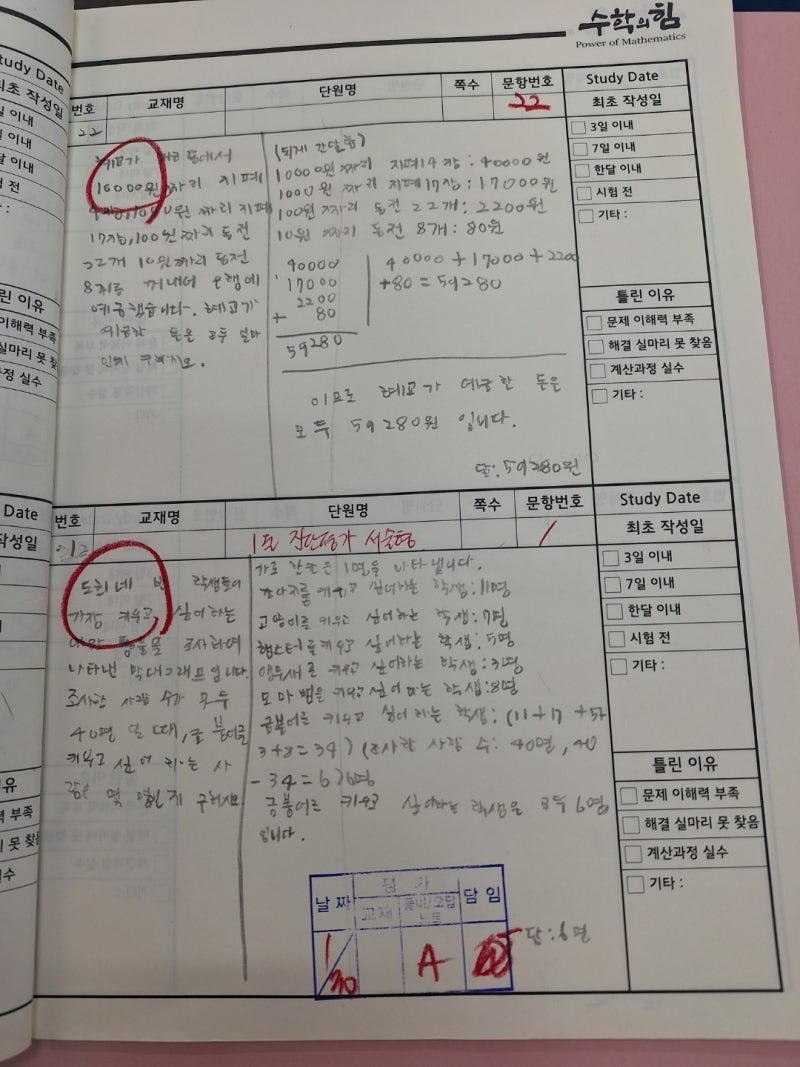 수학의힘
Power of Mathematics
Study Date
최초 작성일
이내
이내
이내
전
번호 교재명 단원명 쪽수 문항번호 Study Date
22 22 최초 작성일
3일 이내
7일 이내
한달 이내
시험 전
기타 :
10000원 짜리 지폐
1000원 짜리 지폐
17장, 100원 짜리 동전
22개 10원 짜리 동전
예금했습니다. 혜교가
예금한 돈은 모두 얼마
10000원 짜리 지폐 4장 : 40000원
1000원 짜리 지폐 17장 : 17000원
100원 짜리 동전 22개 : 2200원
10원 짜리 동전 8개 : 80원
40000
17000
2200
+ 80
59280
40000 + 17000 + 2200
+80 = 59280
이므로 혜교가 예금한 돈은
모두 59280원 입니다.
답 : 59280원
틀린 이유
문제 이해력 부족
해결 실마리 못 찾음
계산과정 실수
기타 :
번호 교재명 단원명 쪽수 문항번호 Study Date
1단 진단평가 서술형 1 최초 작성일
3일 이내
7일 이내
한달 이내
시험 전
기타 :
도희네 반 학생들이
가장 키우고 싶어하는
조사하여
나타낸 막대그래프입니다.
조사한 사람 수가 모두
40명 일 때, 금붕어를
키우고 싶어 하는 사
가로 한 칸은 1명을 나타냅니다.
강아지를 키우고 싶어하는 학생 : 11명
고양이를 키우고 싶어하는 학생 : 7명
햄스터를 키우고 싶어하는 학생 : 5명
앵무새를 키우고 싶어하는 학생 : 3명
키우고 싶어하는 학생 : 8명
금붕어를 키우고 싶어하는 학생 : (11+7+5+
3+8=34) (조사한 사람 수 : 40명, 40
-34=6) 6명
금붕어를 키우고 싶어하는 학생은 모두 6명
입니다.
답 : 6명
틀린 이유
문제 이해력 부족
해결 실마리 못 찾음
계산과정 실수
기타 :
날짜 평가 담임
교재
1/30 A